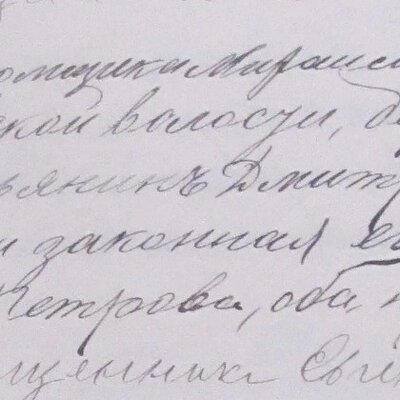 омщика Михаил
ской волости, б
ьянинъ Дмитр
и законная е
Петрова, оба
щенникъ Евг